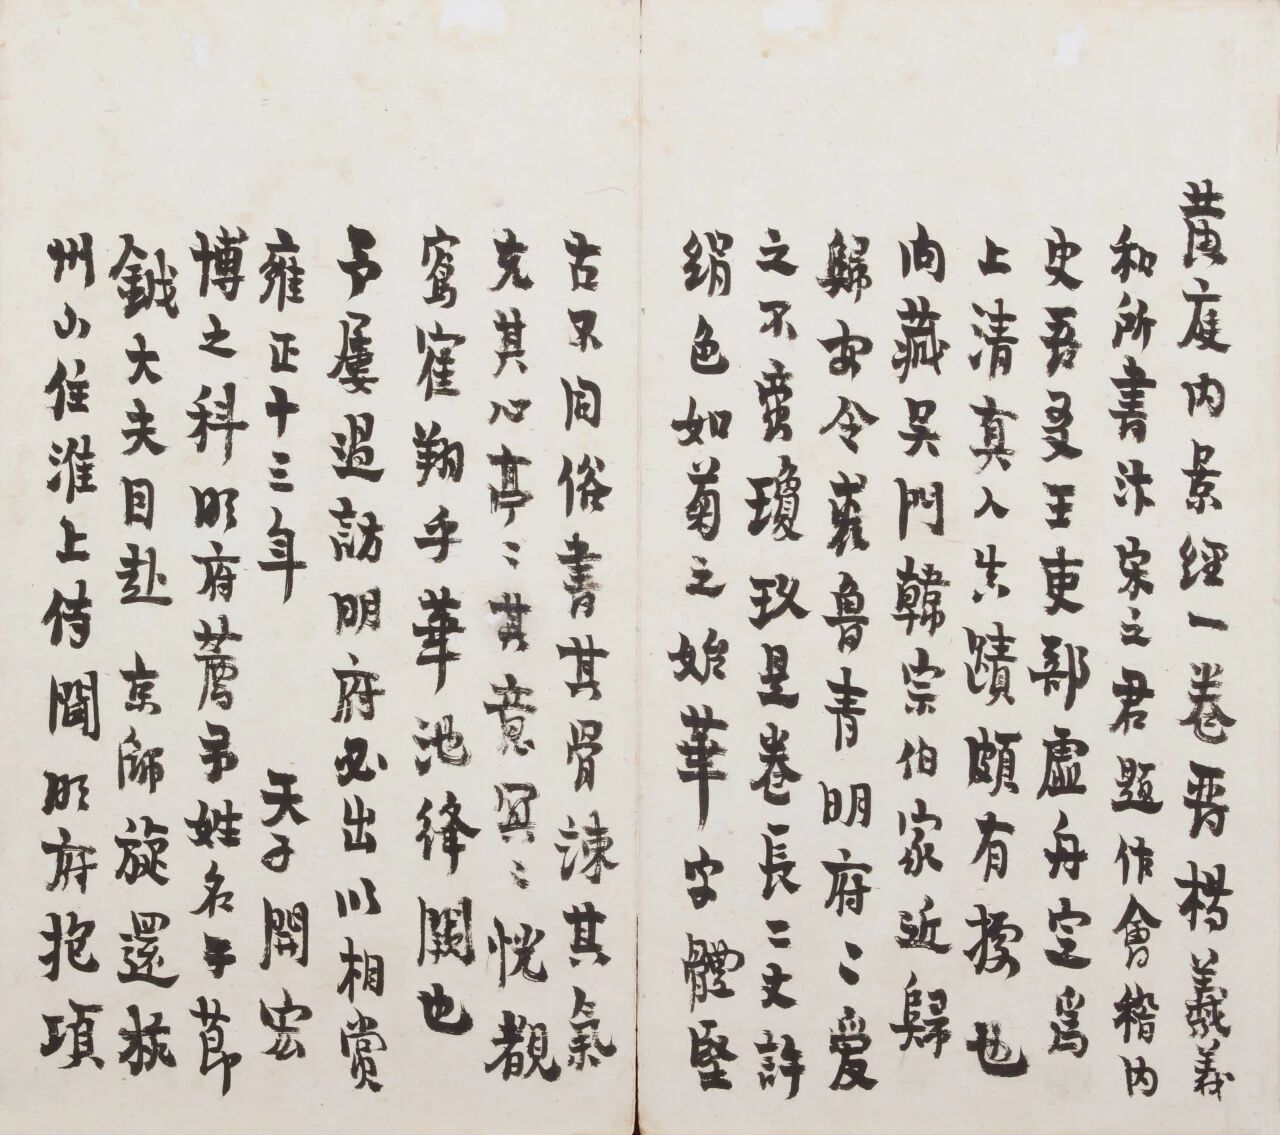 黄庭内景經一卷晋楊羲義
和所書汴宋之君題作會稽内
史吾友王吏部虚舟定爲
上清真人真蹟頗有據也
向藏吳門韓宗伯家近歸
歸安令裘魯青明府二愛
之不啻瓊玖是卷長二丈許
絹色如菊之始華字體堅
古不同俗書其骨諫其氣
克其心亭二其意冥二恍覩
鸾寉翔乎華池絳闕也
予屢過訪明府必出以相賞
雍正十三年 天子開宏
博之科明府薦予姓名手節
鉞大夫目赴 京師旋還杭
州山住淮上侍聞明府抱項